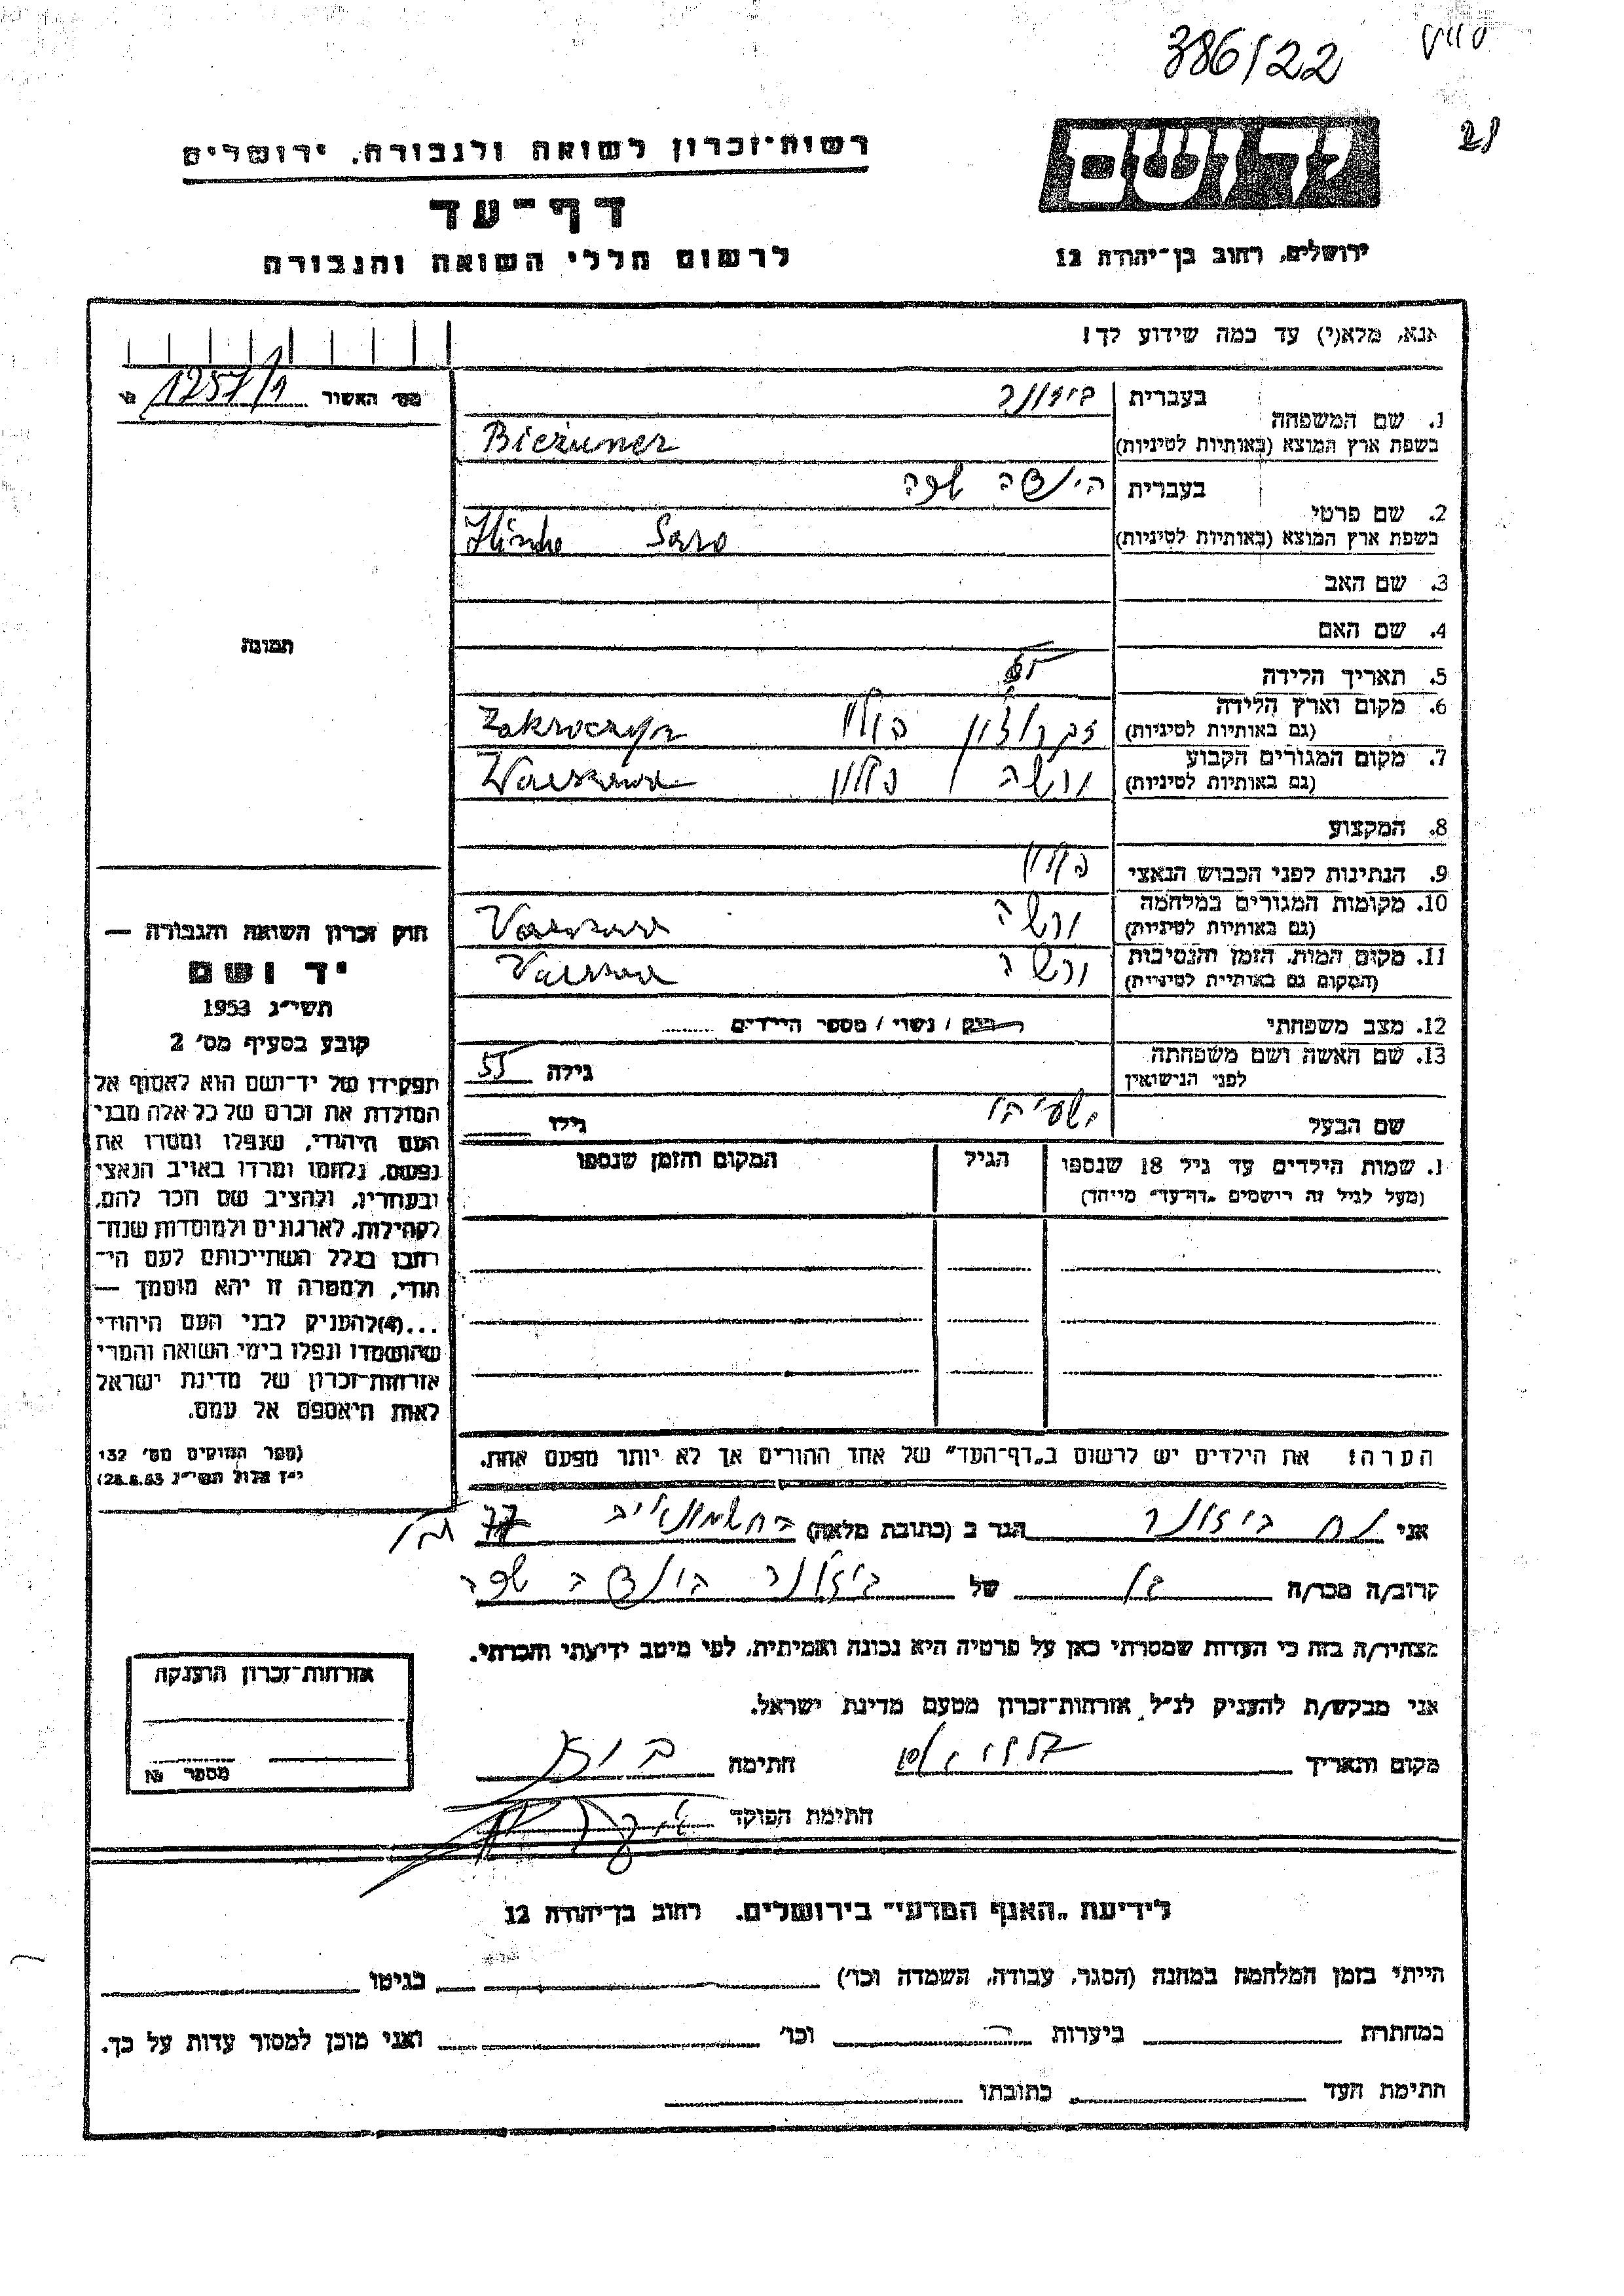 386/22
28
יד ושם
רשות-זכרון לשואה ולגבורה, ירושלים
דף-עד
לרשום חללי השואה והגבורה
ירושלים, רחוב בן-יהודה 12
אנא, מלא(י) עד כמה שידוע לך!
מס' האשור 1257/1 №
1. שם המשפחה
בעברית ביזונר
בשפת ארץ המוצא (באותיות לטיניות) Bieżuner
2. שם פרטי
בעברית הינצה שרה
בשפת ארץ המוצא (באותיות לטיניות) Sara
3. שם האב
4. שם האם
תמונה
5. תאריך הלידה
6. מקום וארץ הלידה
(גם באותיות לטיניות) פולין Zakroczyn
7. מקום המגורים הקבוע
(גם באותיות לטיניות) ורשה פולין Warszawa
8. המקצוע
9. הנתינות לפני הכבוש הנאצי פולין
10. מקומות המגורים במלחמה
(גם באותיות לטיניות) ורשה
11. מקום המות, הזמן והנסיבות
(המקום גם באותיות לטיניות) ורשה
12. מצב משפחתי רווק / נשוי / מספר הילדים
13. שם האשה ושם משפחתה
לפני הנישואין גילה 55
שם הבעל ישעיהו גילו
1. שמות הילדים עד גיל 18 שנספו הגיל המקום והזמן שנספו
(מעל לגיל זה רושמים "דף-עד" מיוחד)
הערה! את הילדים יש לרשום ב"דף-העד" של אחד ההורים אך לא יותר מפעם אחת.
חוק זכרון השואה והגבורה —
יד ושם
תשי"ג 1953
קובע בסעיף מס' 2
תפקידו של יד-ושם הוא לאסוף אל
המולדת את זכרם של כל אלה מבני
העם היהודי, שנפלו ומסרו את
נפשם, נלחמו ומרדו באויב הנאצי
ובעוזריו, ולהציב שם וזכר להם,
לקהילות, לארגונים ולמוסדות שנח-
רבו בגלל השתייכותם לעם הי-
הודי, ולמטרה זו יהא מוסמך —
...(4) להעניק לבני העם היהודי
שהושמדו ונפלו בימי השואה והמרי
אזרחות-זכרון של מדינת ישראל
לאות היאספם אל עמם.
(ספר החוקים מס' 132
י"ז אלול תשי"ג 28.8.53)
אני נח ביזונר הגר ב (כתובת מלאה) 77
קרוב/ה מכר/ה בן של ביזונר הינצה שרה
מצהיר/ה בזה כי העדות שמסרתי כאן על פרטיה היא נכונה ואמיתית, לפי מיטב ידיעתי והכרתי.
אני מבקש/ת להעניק לנ"ל אזרחות-זכרון מטעם מדינת ישראל.
מקום ותאריך חתימה
חתימת הפוקד
אזרחות-זכרון הוענקה
מספר №
לידיעת "האגף המדעי" בירושלים, רחוב בן-יהודה 12
הייתי בזמן המלחמה במחנה (הסגר, עבודה, השמדה וכו') בגיטו
במחתרת ביערות וכו' ואני מוכן למסור עדות על כך.
חתימת העד כתובתו